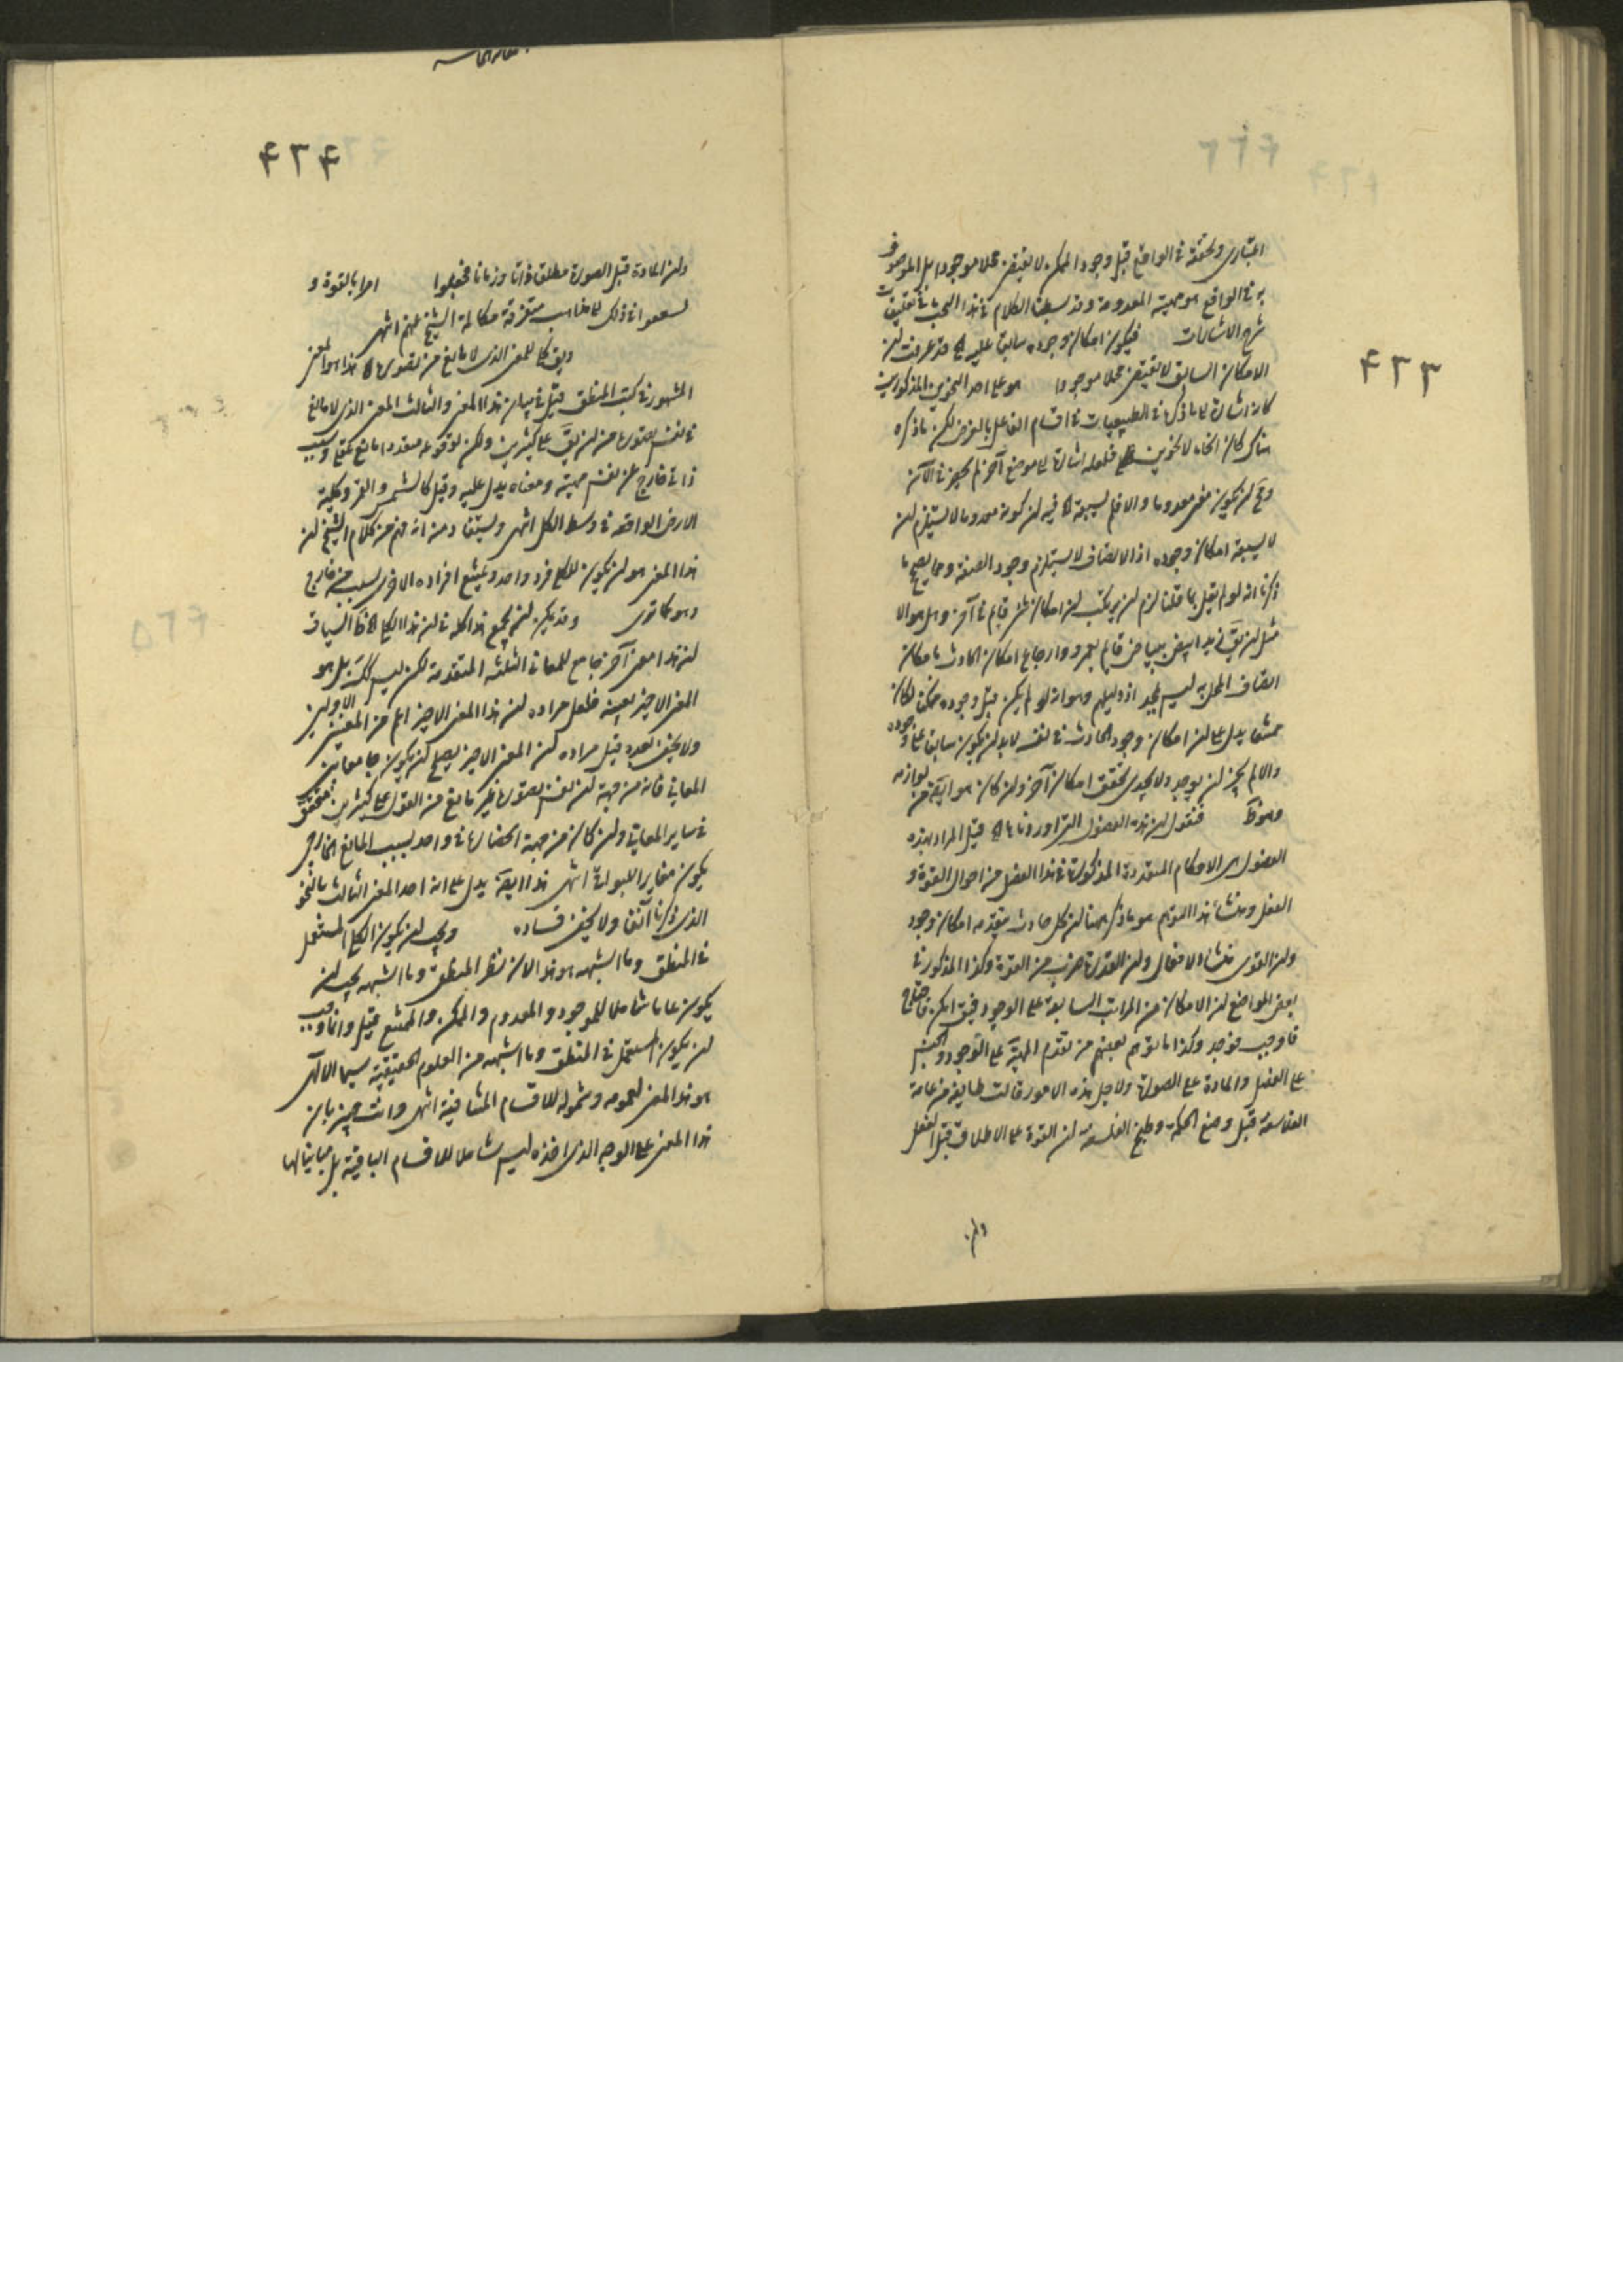 ۴۳۳
اعتباری وتحققه فی الواقع قبل وجود الممکن لا یقتضی محلا موجودا بل الموصوف
به فی الواقع هو مهیته المعدومة وقد بسطنا الکلام فی هذا البحث فی تعلیقات
شرح الاشارات فیکون امکان وجوده سابقا علیه اه قد عرفت ان
الامکان السابق لا یقتضی محلا موجودا هو علی احد النحوین المذکورین
کان اشارة لما ذکر فی الطبیعیات فی اقسام الفاعل بالعرض لکن ما ذکره
هناک کان انحاء لا نحوین فلعله اشارة لما موضع آخر لم یحضر فی الآن
وح ان یکون معنی معدوما والا فلم یسبقه اه فیه ان کونه معدوما لا یستلزم ان
لا یسبقه امکان وجوده اذ الاتصاف لا یستلزم وجود الصفة ومما یصحح ما
ذکرنا انه لو لم یقل بما قلنا لزم ان یرتکب ان امکان شیء قائم فی آخر وهل هو الا
مثل ان یق زید ابیض ببیاض قائم بعمرو وارجاع امکان الحادث بامکان
اتصاف المحل به لیس بمجد اذ دلیلهم وهو انه لو لم یکن قبل وجوده ممکنا لکان
ممتنعا یدل علی ان امکان وجود الحادث فی نفسه لابد ان یکون سابقا علی وجوده
والا لم یجز ان یوجد ولا یجدی تحقق امکان آخر وان کان هو ایضا من لوازمه
فنقول ان هذه الفصول التی اوردناها اه قیل المراد بهذه
الفصول هی الاحکام المتعددة المذکورة فی هذا الفصل من احوال القوة و
الفعل ومنشأ هذا التوهم هو ما ذکر ههنا ان کل حادث یتقدمه امکان وجود
وان القوی منشاء الافعال وان القدرة ضرب من القوة وکذا المذکور فی
بعض المواضع ان الامکان من المراتب السابقة علی الوجود فیق امکن فاحتاج
فاوجب فوجد وکذا ما توهم بعضهم من تقدم المهیة علی الوجود والجنس
علی الفصل والمادة علی الصورة ولاجل هذه الامور قالت طایفة من عامة
الفلاسفة قبل وضع الحکمة وطبخ الفلسفة ان القوة علی الاطلاق قبل الفعل
وان
۴۳۴
وان المادة قبل الصورة مطلقا ذاتا وزمانا فجعلوا امرا بالقوة و
فی ذلک لما مذاهب متفرقة حکایة الشیخ عنهم انتهی
ویق کلی للمعنی الذی لا مانع من تصوره اه هذا هو المعنی
المشهور فی کتب المنطق قیل فی بیان هذا المعنی والثالث المعنی الذی لا مانع
فی نفس تصوره من ان یق علی کثیرین ولکن لوقوعه متعددا مانع عقلی وسبب
ذاتی خارج عن نفس مهیته ومعناه یدل علیه وقیل کالشمس والقمر وکلیة
الارض الواقعه فی وسط الکل انتهی ویستفاد منه انه فهم من کلام الشیخ ان
هذا المعنی هو ان یکون للکلی فرد واحد ویمتنع افراده الاخری لسبب من خارج
وهو کما تری وقد یمکن ان یجمع هذا کله فی ان هذا الکلی اه ظ السیاق
ان هذا معنی آخر جامع للمعانی الثلثه المتقدمة لکن لیس کک بل هو
المعنی الاخیر بعینه فلعل مراده ان هذا المعنی الاخیر اعم من المعنیین الاولین
ولا یخفی بعده قیل مراده ان المعنی الاخیر یصلح ان یکون جامعا بین
المعانی فانه من جهة ان نفس تصوره غیر مانع من القول علی کثیرین متحقق
فی سایر المعانی وان کان من جهة انحصاره فی واحد بسبب المانع الخارجی
یکون مغایرا للبواقی انتهی هذا ایضا یدل علی انه اخذ المعنی الثالث بالنحو
الذی ذکرنا آنفا ولا یخفی فساده ویجب ان یکون الکلی المستعمل
فی المنطق وما اشبهه هو هذا لان نظر المنطق وما اشبهه یجب ان
یکون عاما شاملا للموجود والمعدوم والممکن والممتنع قیل وانما وجب
ان یکون المستعمل فی المنطق وما اشبهه من العلوم الحقیقیة سیما الالهی
هو هذا المعنی لعمومه وشموله للاقسام المتنافیة انتهی وانت خبیر بان
هذا المعنی علی الوجه الذی اخذه لیس شاملا للاقسام الباقیة بل مباینا لها